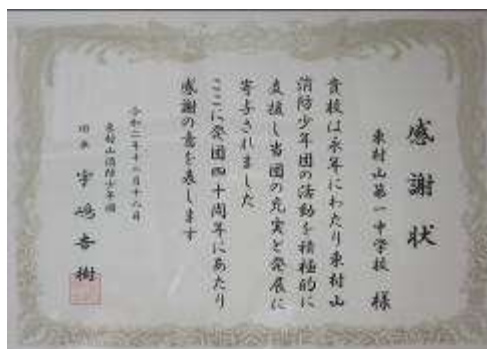 感謝状
東村山第一中学校 様
貴校は永年にわたり東村山
消防少年団の活動を積極的に
支援し当団の充実と発展に
寄与されました
ここに発団四十周年にあたり
感謝の意を表します
令和二年十二月十八日
東村山消防少年団
団長 宇嶋杏樹